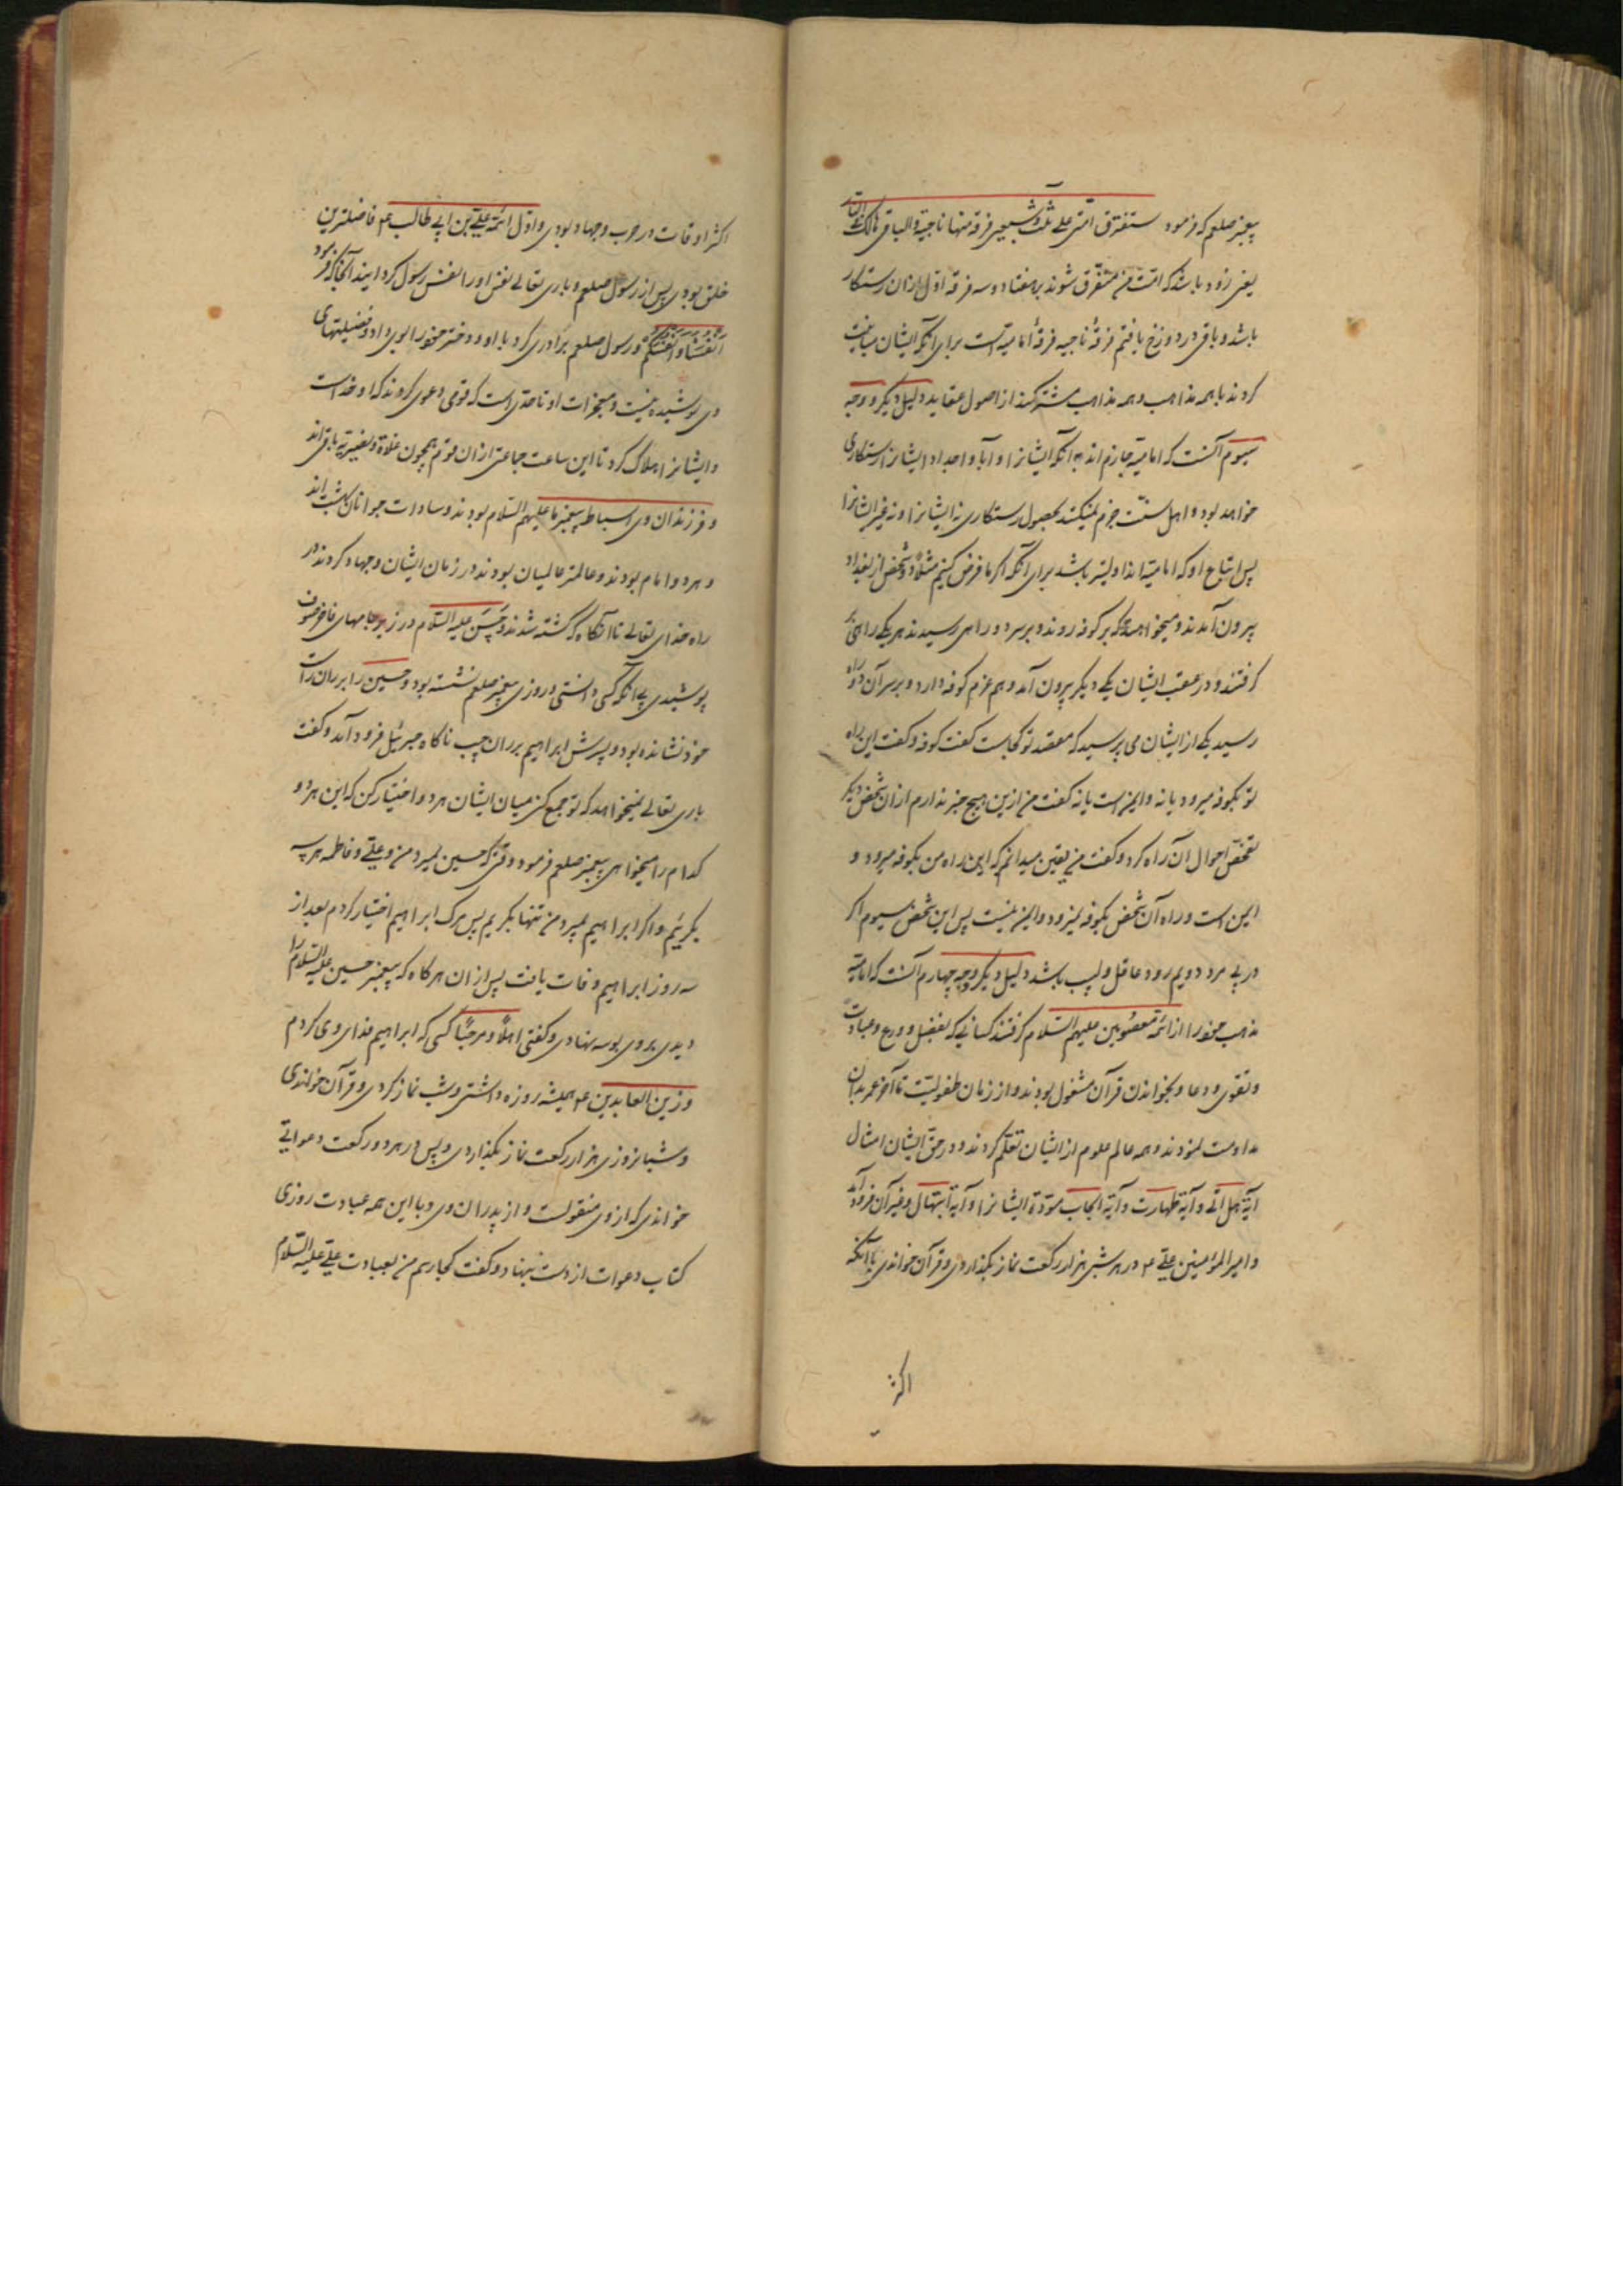 پیغمبر صلعم که فرمود ستفترق امتی علی ثلث و سبعین فرقة منها ناجیة و الباقی هالك فی النار
یعنی زود باشد که امت من متفرق شوند بر هفتاد و سه فرقه اول ازان رستکار
باشد و باقی در دوزخ یافتم فرقهٔ ناجیه فرقهٔ امامیه است برای آنکه ایشان مباینت
کردند با همه مذاهب و همه مذاهب مشترکند از اصول عقاید دلیل دیکر و وجه
سیوم آنست که امامیه جازم اند بآنکه ایشانرا و آبا و اجداد ایشانرا رستکاری
خواهد بود و اهل سنت جزم نمیکنند بحصول رستکاری نه ایشانرا و نه غیر ایشانرا
پس اتباع او که امامیه اند اولیتر باشد برای آنکه اکر ما فرض کنیم مثلا دو شخص از بغداد
بیرون آمدند و میخواهند که بر کوفه روند و بر سر دو راهی رسیدند هر یکی راهی
کرفتند و در عقب ایشان یکی دیکر بیرون آمد و هم عزم کوفه دارد و بر سر آن دو راه
رسید یکی از ایشان می پرسید که مقصد تو کجاست کفت کوفه و کفت این راه
تو بکوفه میرود یا نه و ایمن است یا نه کفت من ازین هیچ خبر ندارم ازان شخص دیکر
تفحص احوال آن راه کرد و کفت من یقین میدانم که این راه من بکوفه میرود و
ایمن است و راه آن شخص بکوفه نمیرود و ایمن نیست پس این شخص سیوم اکر
در پی مرد دویم رود عاقل و لبیب باشد دلیل دیکر وجه چهارم آنست که امامیه
مذهب خود را از ائمه معصومین علیهم السلام کرفتند کسانی که بفضل و ورع و عبادت
و تقوی و دعا و بخواندن قرآن مشغول بودند و از زمان طفولیت تا آخر عمر بدان
مداومت نمودند و همه عالم علوم از ایشان تعلم کردند و در حق ایشان امثال
آیة هل اتی و آیة طهارت و آیة ایجاب مودة ایشانرا و آیة ابتهال و غیر آن فرود آمد
و امیر المؤمنین علی ع در هر شبی هزار رکعت نماز بکذاردی و قرآن خواندی با آنکه
اکثر
اکثر اوقات در حرب و جهاد بودی و اول ائمه علی بن ابی طالب ع فاضلترین
خلق بودی پس از رسول صلعم و باری تعالی نفس او را نفس رسول کردانید آنجا که فرمود
انفسنا و انفسکم و رسول صلعم برادری کرد با او و دختر خود را بوی داد و فضیلتهای
وی پوشیده نیست و معجزات او تا حدی است که قومی دعوی کردند که او خداست
و ایشانرا هلاک کرد تا این ساعت جماعتی ازان قوم همچون غلاة و نصیریه باقی اند
و فرزندان وی اسباط پیغمبر ما علیهم السلام بودند و سادات جوانان بهشت اند
و هر دو امام بودند و عالمتر عالمیان بودند در زمان ایشان و جهاد کردند در
راه خدای تعالی تا آنکاه که کشته شدند و حسن علیه السلام در زیر جامهای فاخر صوف
پوشیدی بی آنکه کسی دانستی و روزی پیغمبر صلعم نشسته بود و حسین را بر ران راست
خود نشانده بود و پسرش ابراهیم بر ران چپ ناکاه جبرئیل فرود آمد و کفت
باری تعالی نمیخواهد که تو جمع کنی میان ایشان هر دو اختیار کن که این هر دو
کدام را میخواهی پیغمبر صلعم فرمود وقتی که حسین بمیرد من و علی و فاطمه هر سه
بکرییم و اکر ابراهیم بمیرد من تنها بکریم پس مرک ابراهیم اختیار کردم بعد از
سه روز ابراهیم وفات یافت پس ازان هرکاه که پیغمبر حسین علیه السلام را
دیدی بر وی بوسه نهادی و کفتی اهلا و مرحبا کسی که ابراهیم فدای وی کردم
و زین العابدین ع همیشه روزه داشتی و شب نماز کردی و قرآن خواندی
و شبانروزی هزار رکعت نماز بکذاردی و پس از هر دو رکعت دعواتی
خواندی که از وی منقولست و از پدران وی و با این همه عبادت روزی
کتاب دعوات از دست بنهاد و کفت کجا رسم من بعبادت علی علیه السلام